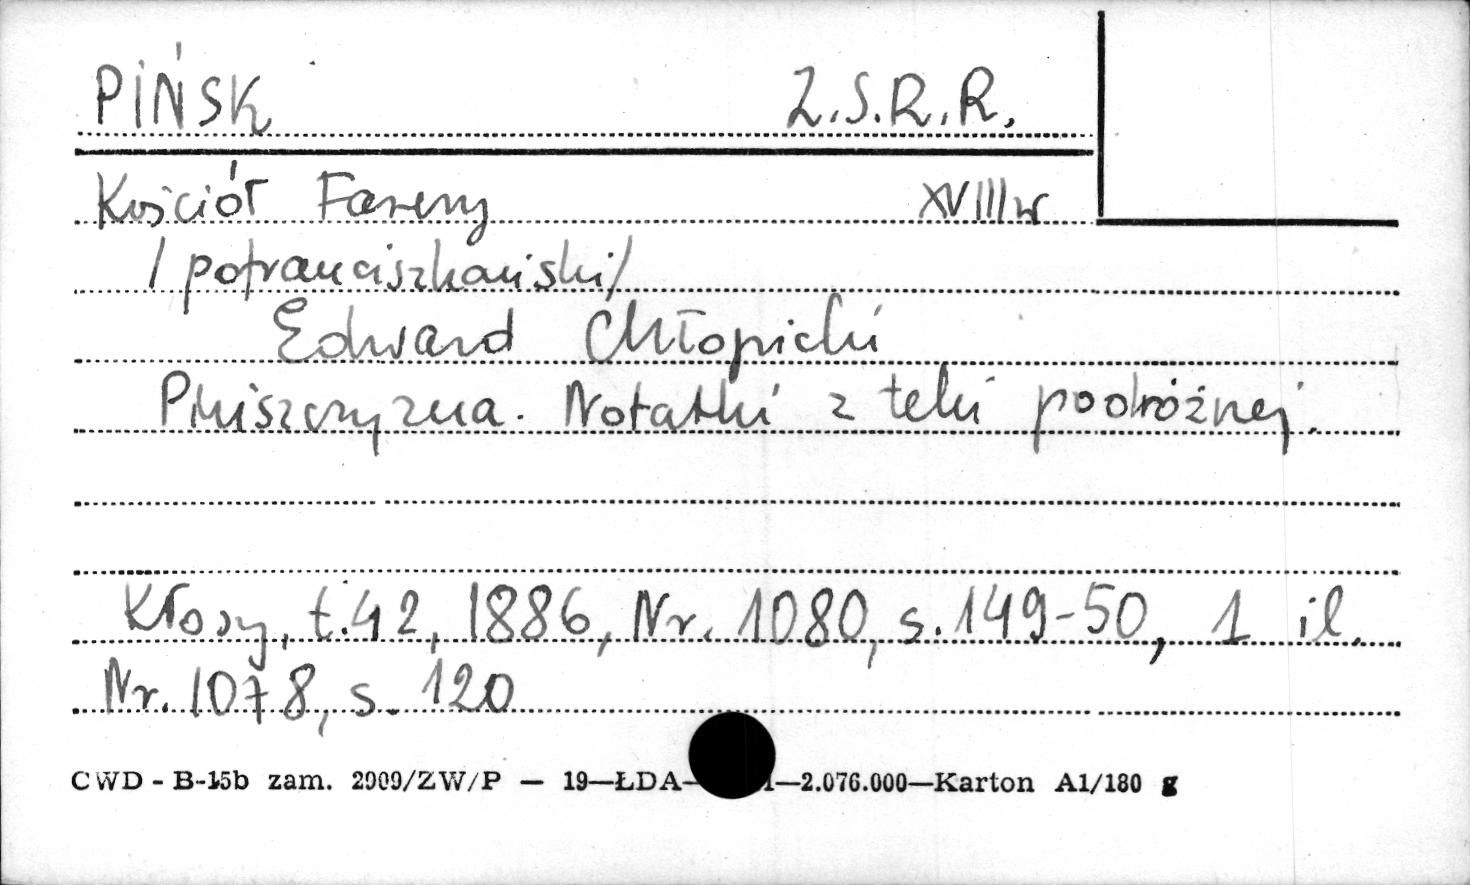 PIŃSK Z.S.R.R.
Kościół Farny XVIII w
/ pofranciszkański /
Edward Chłopicki
Pińszczyzna. Notatki z teki podróżnej.
Kłosy, t.42, 1886, Nr. 1080, s.149-50, 1 il.
Nr. 1078, s. 120
CWD - B-15b zam. 2909/ZW/P — 19—ŁDA— —2.076.000—Karton A1/180 g